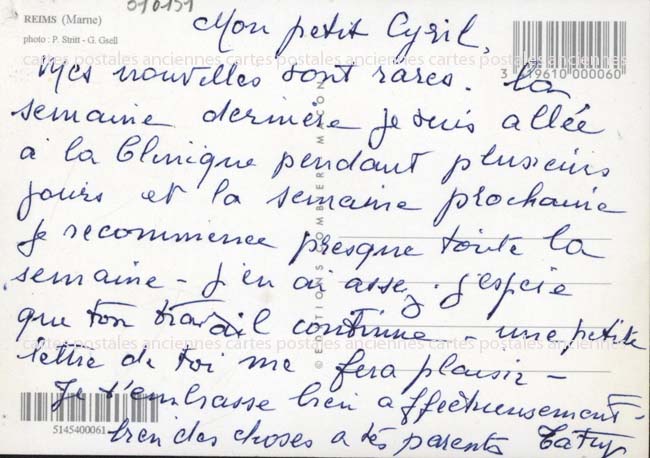 070151
REIMS (Marne)
photo : P. Stritt - G. Gsell
Mon petit Cyril,
cartes postales anciennes cartes postales anciennes cartes postales anciennes
mes nouvelles sont rares. La
3 419610 000060
semaine dernière je suis allée
à la Clinique pendant plusieurs
jours et la semaine prochaine
je recommence presque toute la
semaine - j'en ai assez. j'espère
que ton travail continue - une petite
cartes postales anciennes cartes postales anciennes cartes postales anciennes
lettre de toi me fera plaisir -
Je t'embrasse bien affectueusement -
5145400061
bien des choses à tes parents
© EDITIONS COMBIER MACON